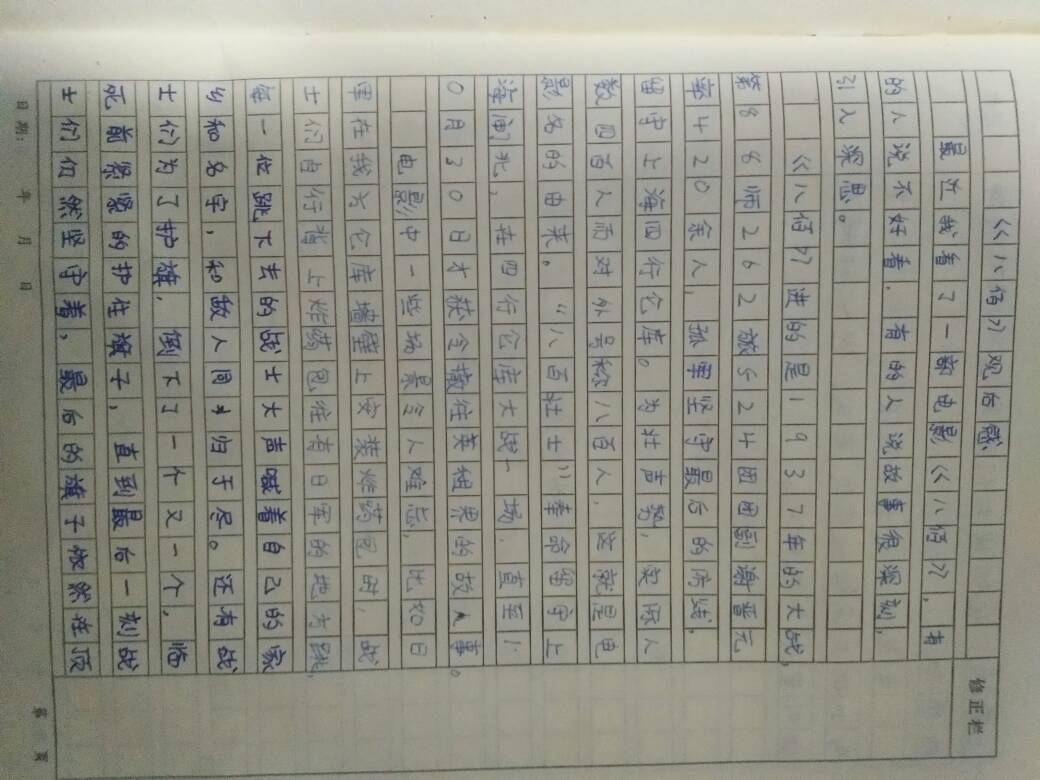 《八佰》观后感
最近我看了一部电影《八佰》，有
的人说不好看.有的人说故事很深刻,
引人深思。
《八佰》进的是1937年的大战,
第88师262旅524团团副谢晋元
率420余人,孤军坚守最后的防线,
留守上海四行仓库。为壮声势,实际人
数四百人而对外号称八百人,这就是电
影名的由来。“八百壮士”奉命留守上
海闸北,在四行仓库大战一场.直至1
0月30日才获令撤往英租界的故事。
电影中一些场景令人难忘,比如日
军在我方仓库墙壁上安装炸药包时,战
士们自行背上炸药包往有日军的地方跳,
每一位跳下去的战士大声喊着自己的家
乡和名字,和敌人同归于尽。还有战
士们为了护旗,倒下了一个又一个,临
死前紧紧的护住旗子,直到最后一刻战
士们仍然坚守着,最后的旗子依然在顶
修正栏
日期： 年 月 日
第 页